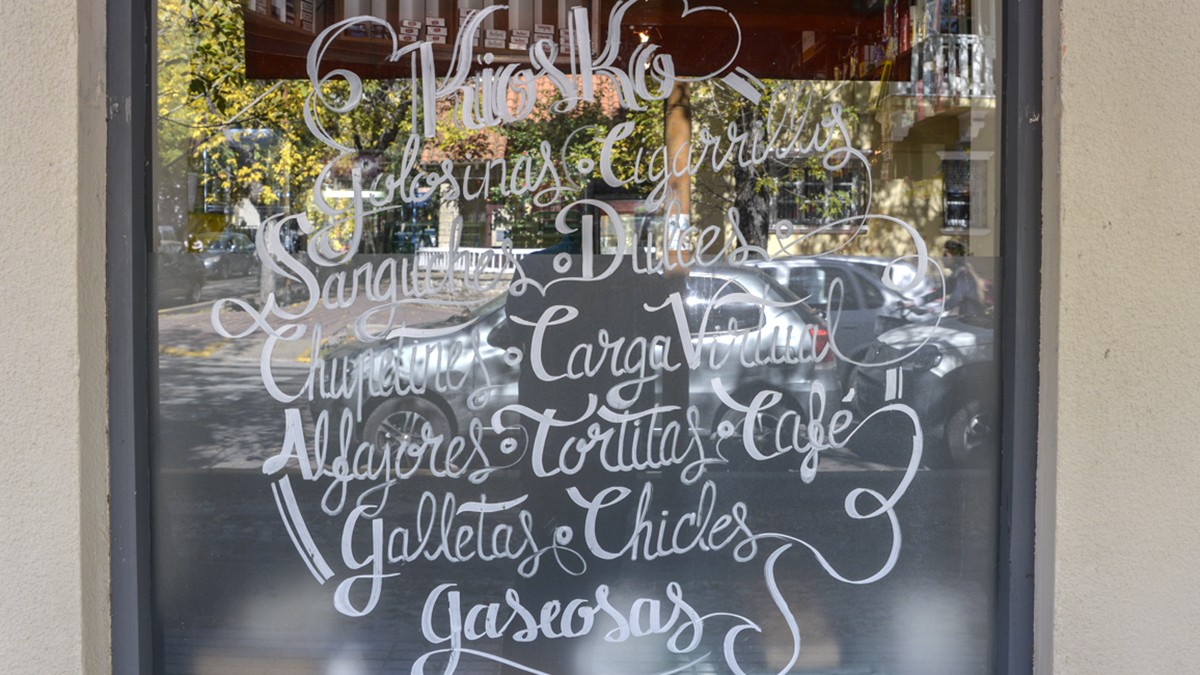 Kiosko
Golosinas · Cigarrillos
Sanguches · Dulces
Chupetines · Carga Virtual
Alfajores · Tortitas · Café
Galletas · Chicles
gaseosas